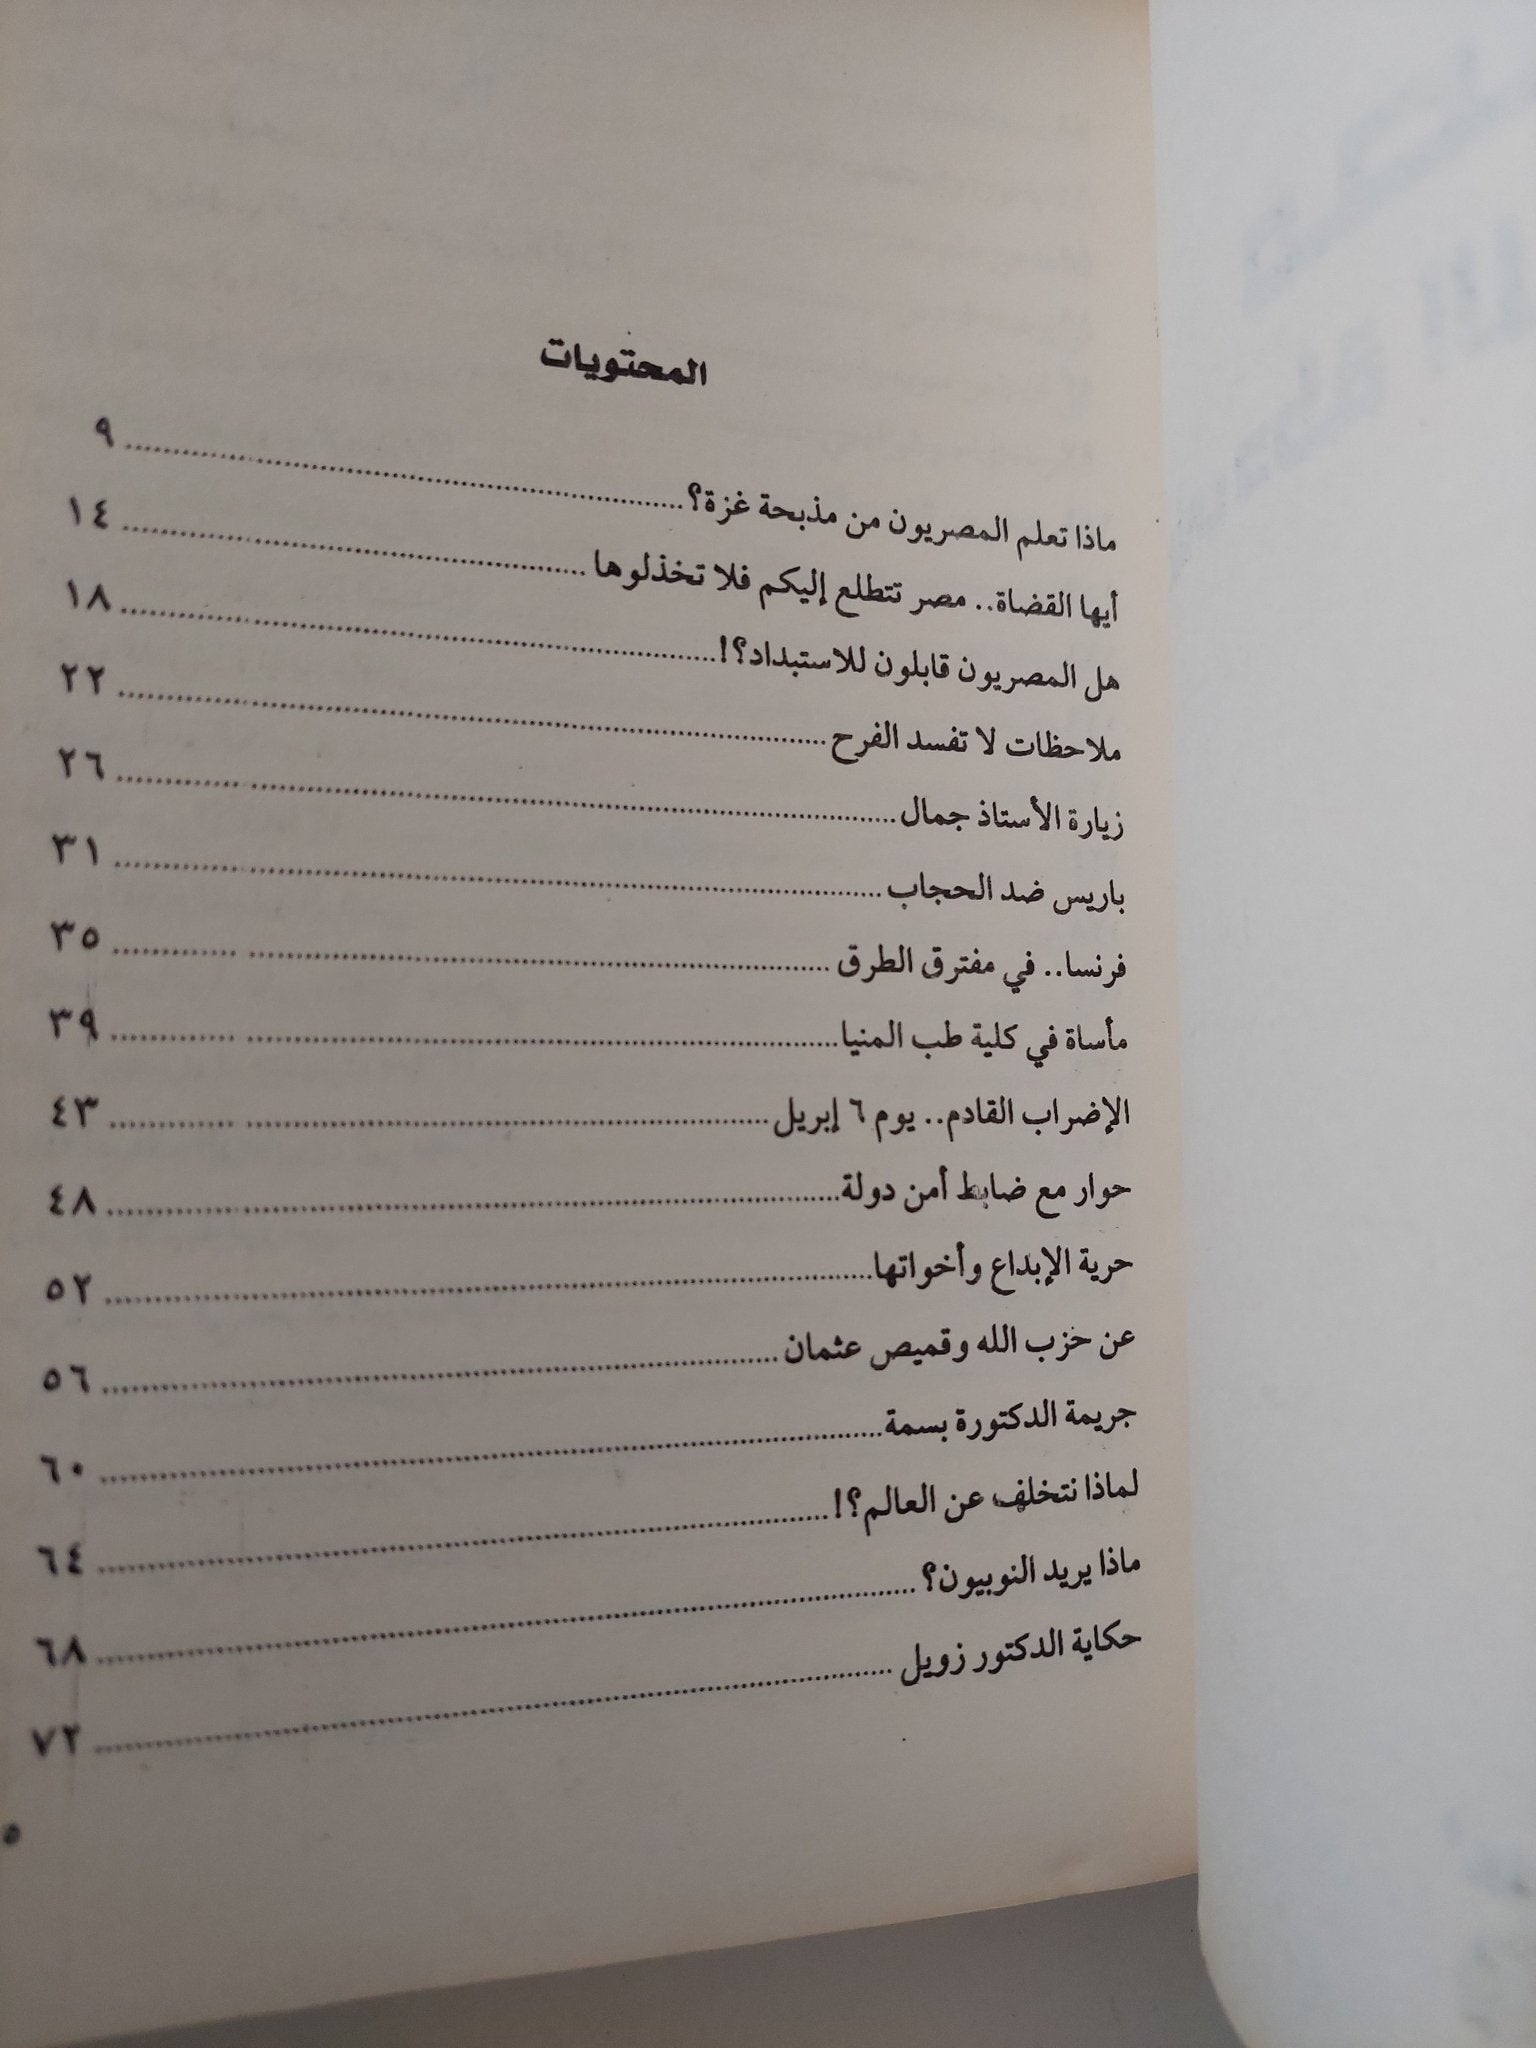 المحتويات
ماذا تعلم المصريون من مذبحة غزة؟ ٩
أيها القضاة.. مصر تتطلع إليكم فلا تخذلوها ١٤
هل المصريون قابلون للاستبداد؟! ١٨
ملاحظات لا تفسد الفرح ٢٢
زيارة الأستاذ جمال ٢٦
باريس ضد الحجاب ٣١
فرنسا.. في مفترق الطرق ٣٥
مأساة في كلية طب المنيا ٣٩
الإضراب القادم.. يوم ٦ إبريل ٤٣
حوار مع ضابط أمن دولة ٤٨
حرية الإبداع وأخواتها ٥٢
عن حزب الله وقميص عثمان ٥٦
جريمة الدكتورة بسمة ٦٠
لماذا نتخلف عن العالم؟! ٦٤
ماذا يريد النوبيون؟ ٦٨
حكاية الدكتور زويل ٧٢
٥